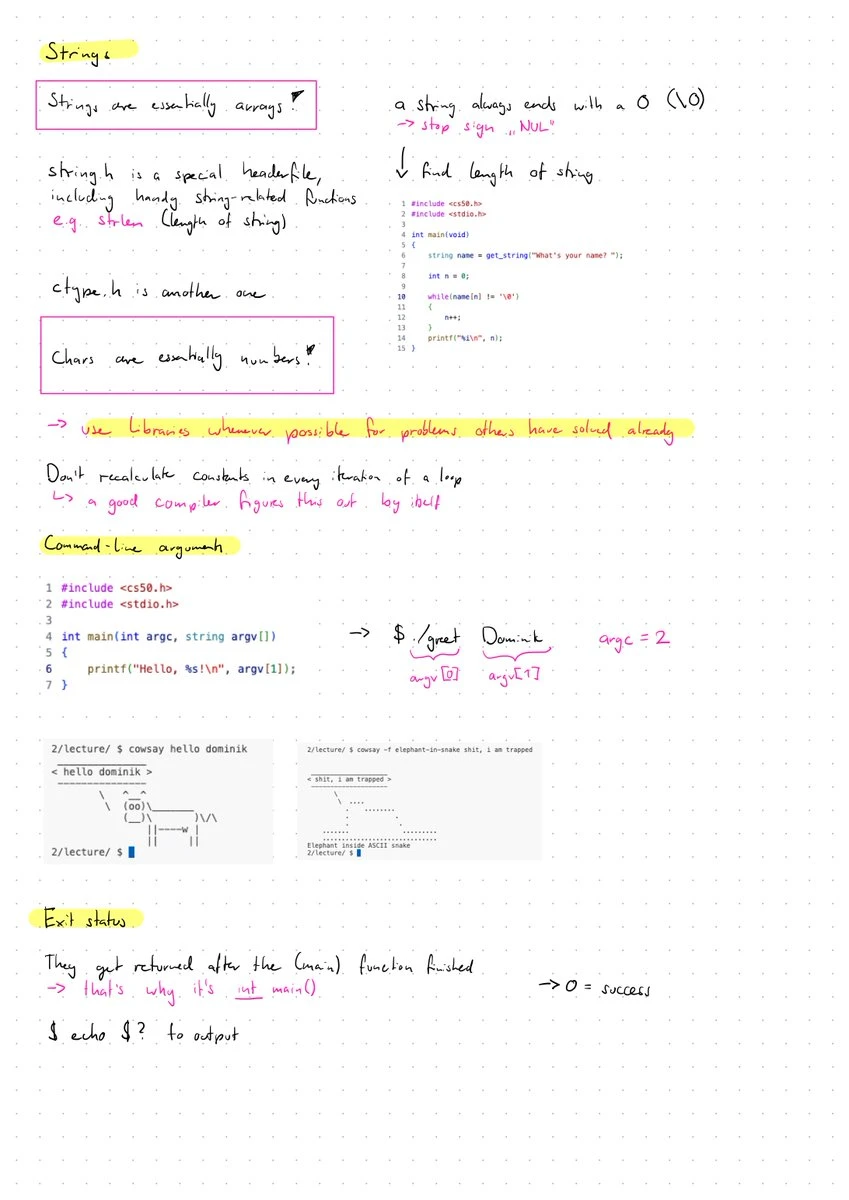 Strings
Strings are essentially arrays!
string.h is a special headerfile,
including handy string-related functions
e.g. strlen (length of string)
ctype.h is another one
Chars are essentially numbers!
a string always ends with a 0 (\0)
-> stop sign „NUL"
↓ find length of string
1 #include <cs50.h>
2 #include <stdio.h>
3
4 int main(void)
5 {
6     string name = get_string("What's your name? ");
7
8     int n = 0;
9
10     while(name[n] != '\0')
11     {
12         n++;
13     }
14     printf("%i\n", n);
15 }
-> use Libraries whenever possible for problems others have solved already
Don't recalculate constants in every iteration of a loop
↳ a good compiler figures this out by itself
Command-line arguments
1 #include <cs50.h>
2 #include <stdio.h>
3
4 int main(int argc, string argv[])
5 {
6     printf("Hello, %s!\n", argv[1]);
7 }
-> $ ./greet Dominik argc = 2
argv[0] argv[1]
2/lecture/ $ cowsay hello dominik
< hello dominik >
        \   ^__^
         \  (oo)\_______
            (__)\       )\/\
                ||----w |
                ||     ||
2/lecture/ $
2/lecture/ $ cowsay -f elephant-in-snake shit, i am trapped
< shit, i am trapped >
Elephant inside ASCII snake
2/lecture/ $
Exit status
They get returned after the (main) function finished
-> that's why it's int main()
-> 0 = success
$ echo $? to output